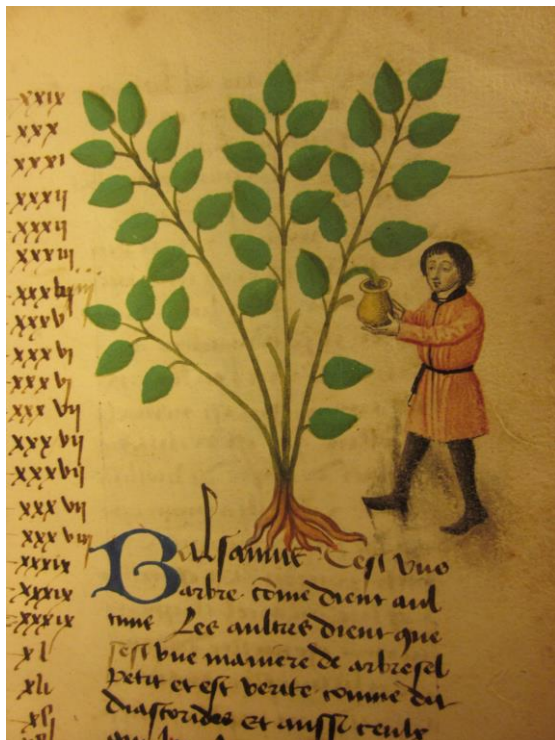 xxix
xxx
xxxi
xxxii
xxxii
xxxiii
xxxv
xxxvi
xxxvi
xxxvii
xxxvii
xxxvii
xxxix
xxxix
xxxix
xl
xli
Balsamus Cest vng
arbre cōme dient aul
cuns Les aultres dient que
sest vne maniere de arbressel
petit et est verite comme dit
diascorides Et aussi ceulx